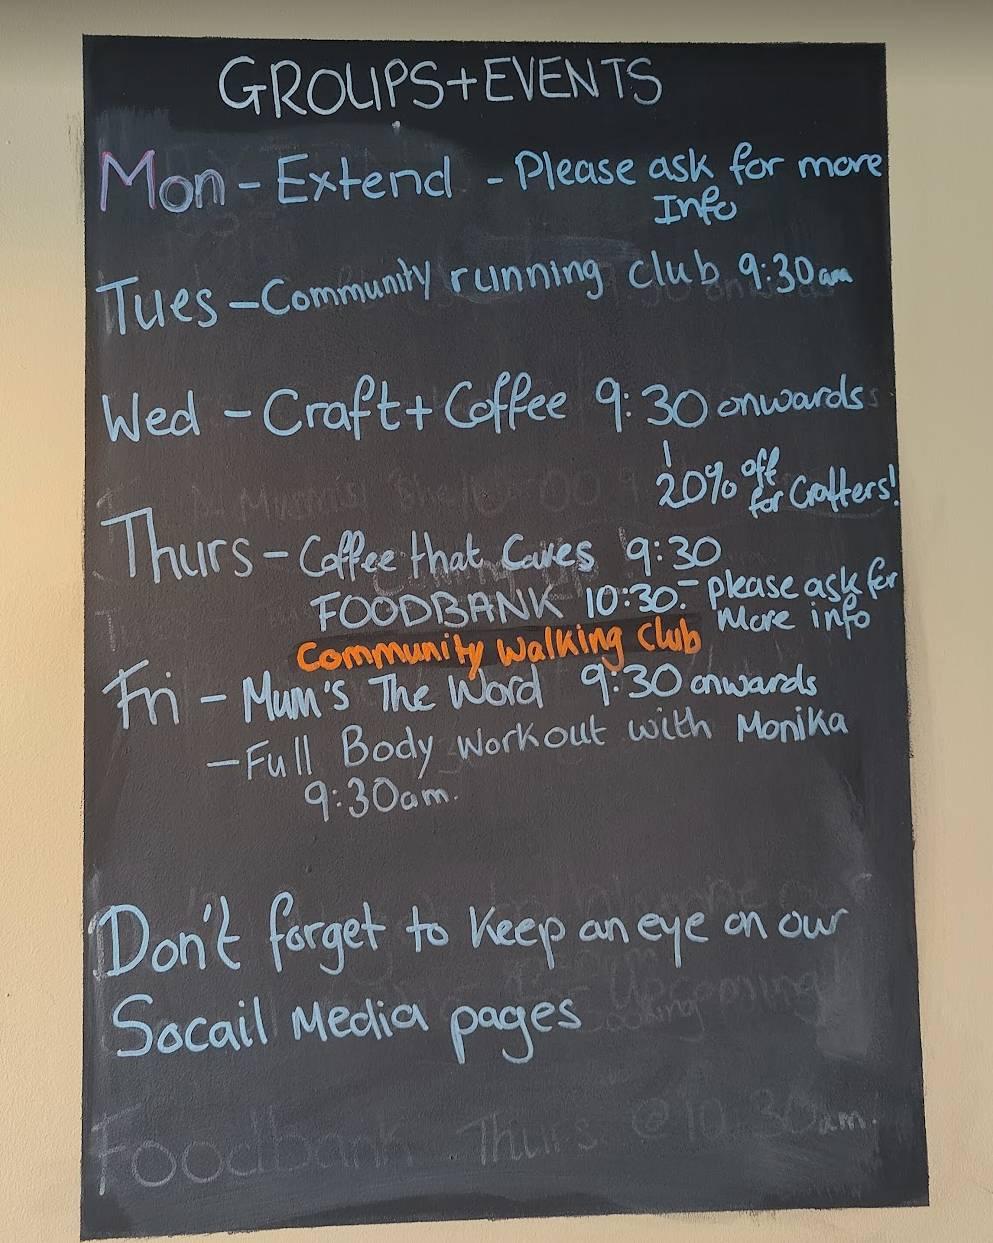 GROUPS+EVENTS
Mon - Extend - Please ask for more
Info
Tues - Community running club 9:30am
Wed - Craft + Coffee 9:30 onwards
20% off
for Crafters!
Thurs - Coffee that Cares 9:30
FOODBANK 10:30 - please ask for
More info
Community Walking Club
Fri - Mum's The Word 9:30 onwards
- Full Body Workout with Monika
9:30am.
Don't forget to keep an eye on our
Socail Media pages
Foodbank Thurs @ 10:30am!